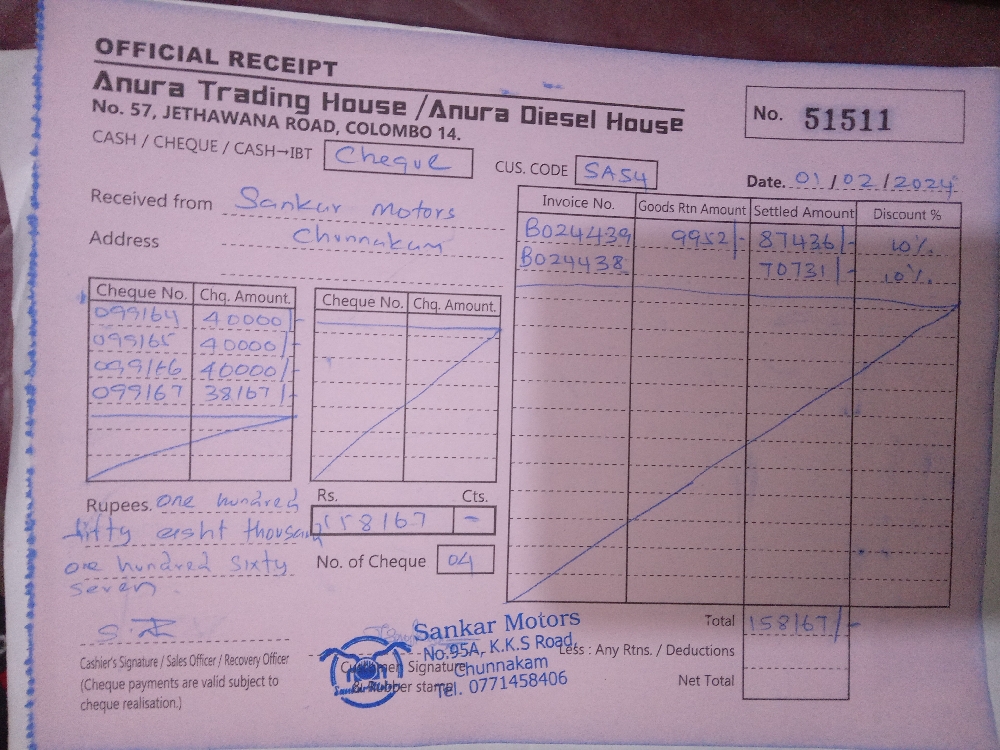 OFFICIAL RECEIPT
Anura Trading House / Anura Diesel House
No. 57, JETHAWANA ROAD, COLOMBO 14.
No. 51511
CASH / CHEQUE / CASH→IBT Cheque
CUS. CODE SA54
Date. 01/02/2024
Received from Sankar Motors
Address Chunnakam
Invoice No. Goods Rtn Amount Settled Amount Discount %
B024439 9952/- 87436/- 10%
B024438 70731/- 10%
Cheque No. Chq. Amount.
099164 40000/-
099165 40000/-
099166 40000/-
099167 38167/-
Cheque No. Chq. Amount.
Rupees. one hundred
fifty eight thousand
one hundred sixty
seven
Rs. Cts.
158167 -
No. of Cheque 04
Total 158167/-
Less : Any Rtns. / Deductions
Net Total
Cashier's Signature / Sales Officer / Recovery Officer
(Cheque payments are valid subject to
cheque realisation.)
Customer Signature
& Rubber stamp
Sankar Motors
No.95A, K.K.S Road,
Chunnakam
Tel. 0771458406